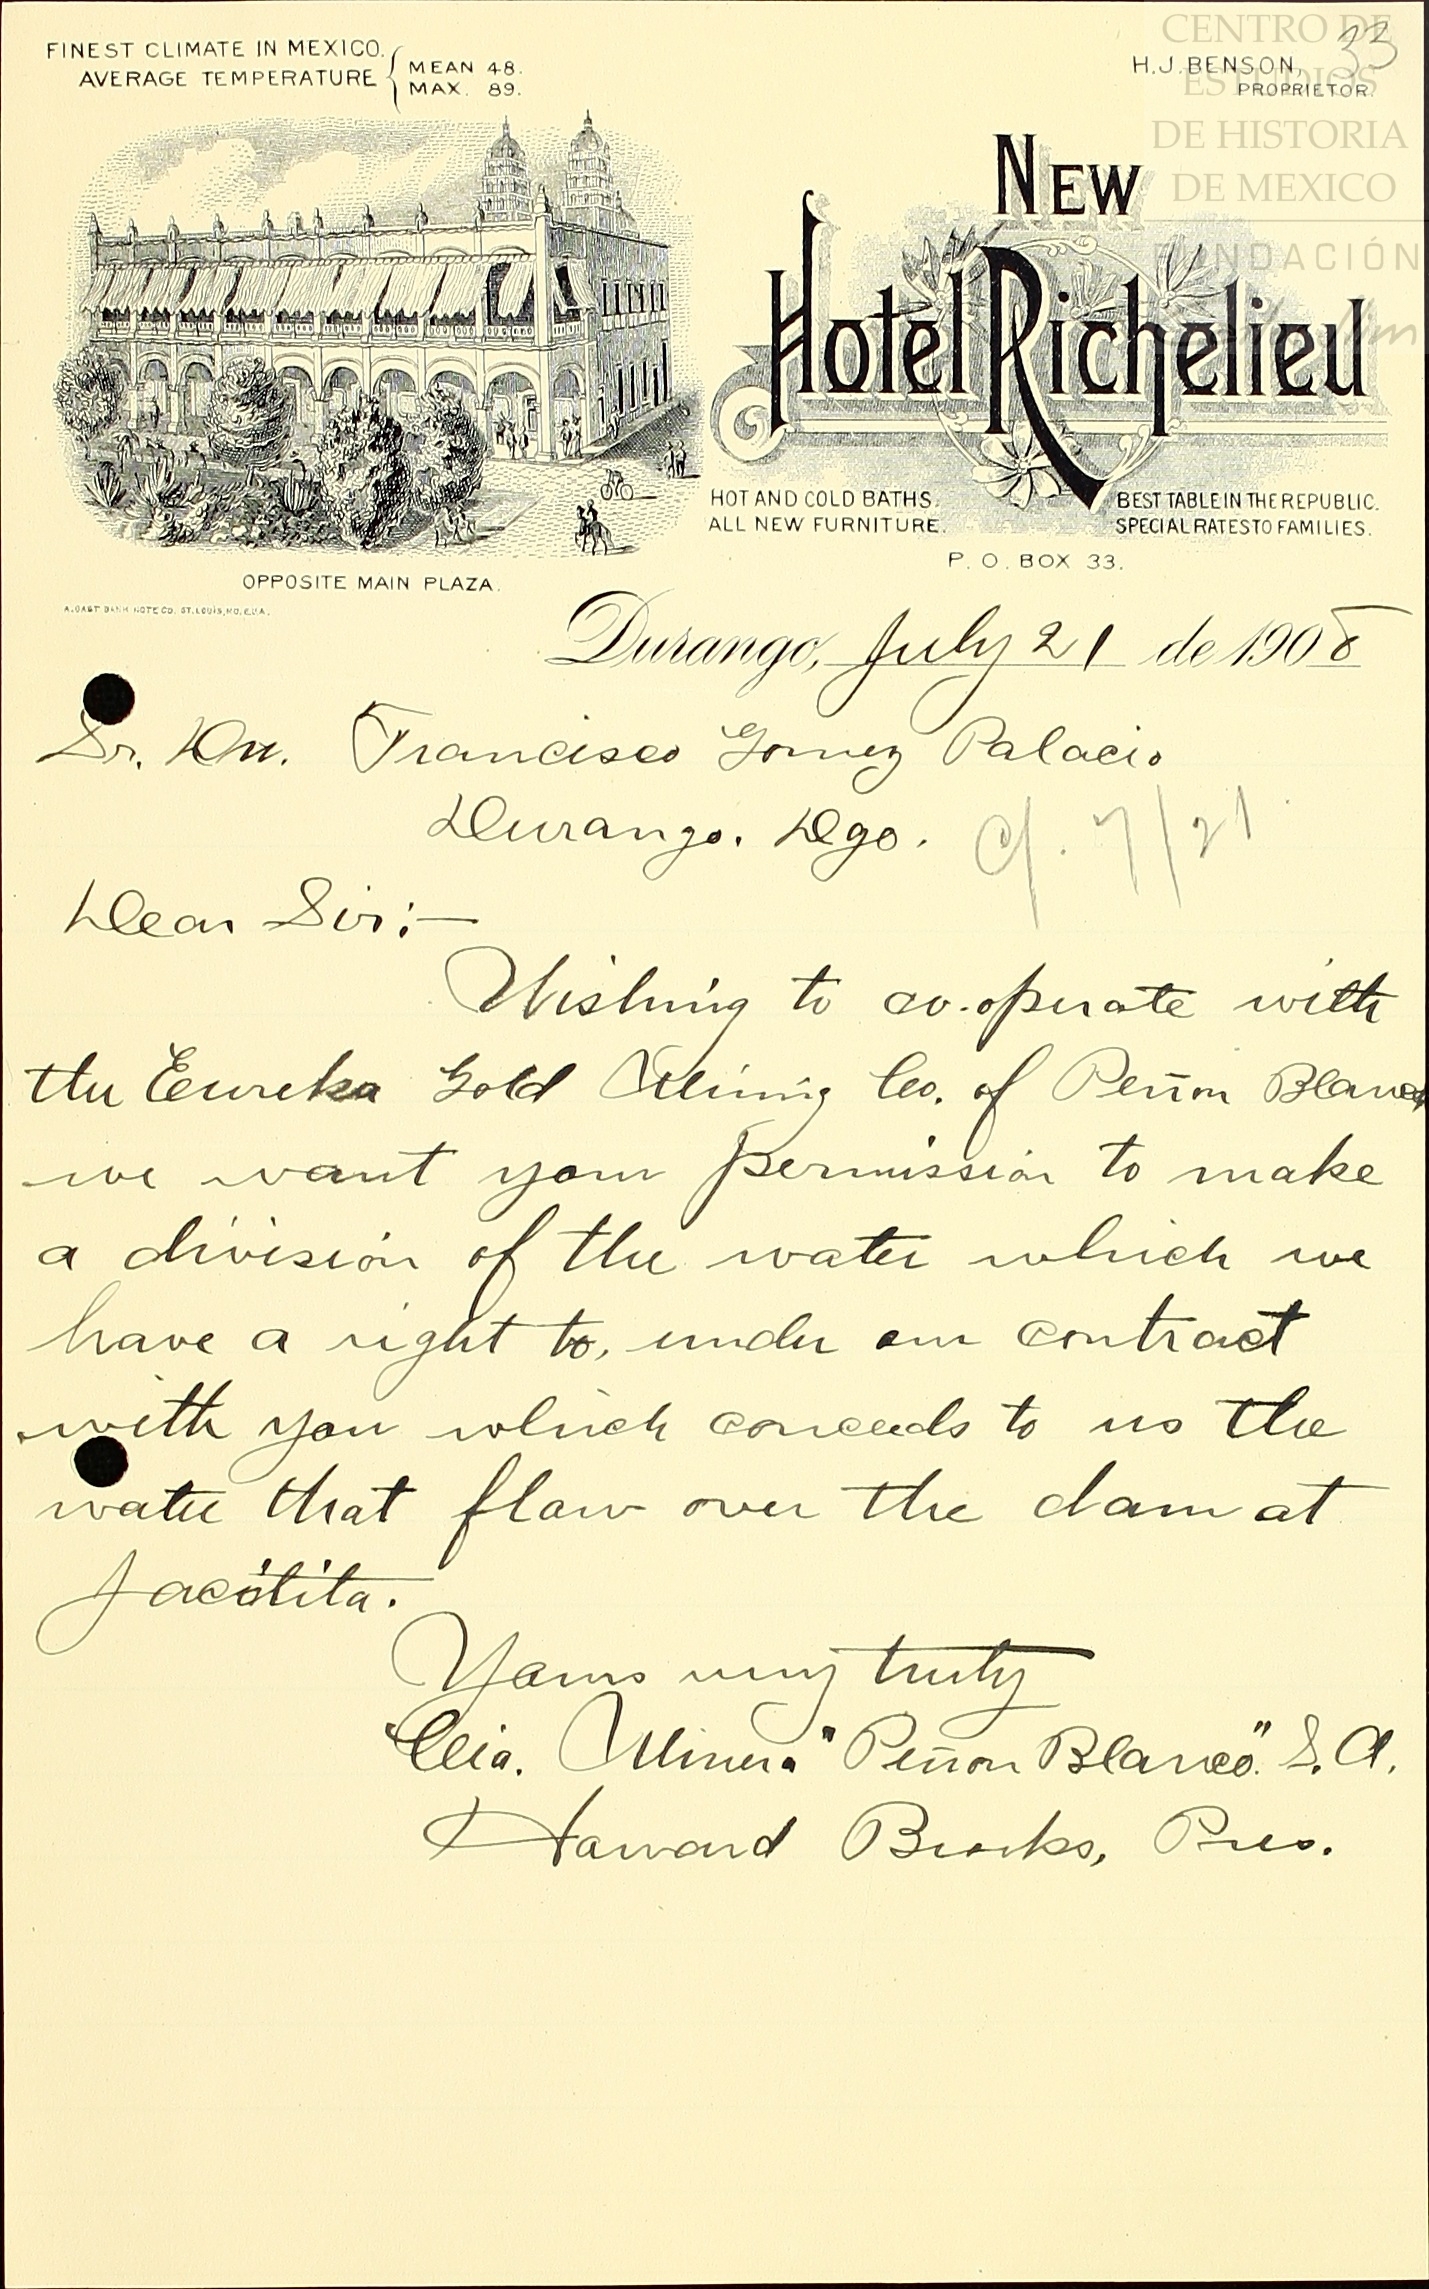 33
CENTRO DE
ESTUDIOS
DE HISTORIA
DE MEXICO
FUNDACIÓN
FINEST CLIMATE IN MEXICO.
AVERAGE TEMPERATURE { MEAN 48.
MAX. 89.
H. J. BENSON,
PROPRIETOR.
NEW
Hotel Richelieu
HOT AND COLD BATHS.
ALL NEW FURNITURE.
BEST TABLE IN THE REPUBLIC.
SPECIAL RATES TO FAMILIES.
P. O. BOX 33.
OPPOSITE MAIN PLAZA.
A. GAST BANK NOTE CO. ST. LOUIS, MO. E.U.A.
Durango, July 21 de 1908
Sr. Dn. Francisco Gomez Palacio
Durango. Dgo. 7/21
Dear Sir:—
Wishing to co-operate with
the Eureka Gold Mining Co. of Peñon Blanco
we want your permission to make
a division of the water which we
have a right to, under our contract
with you which conceeds to us the
water that flow over the dam at
Jacotita.
Yours very truly
"Cia. Minera "Peñon Blanco". S. A.
Howard Brooks, Pres.